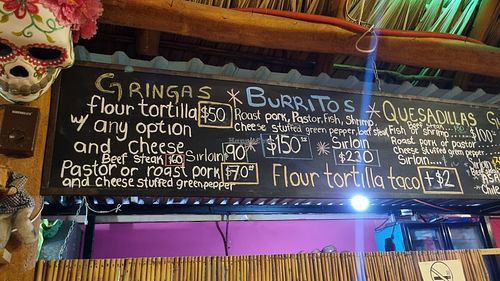 GRINGAS
flour tortilla $50
w/ any option
and cheese
Beef steak 60 Sirloin 90
Pastor or roast pork $70
and cheese stuffed green pepper
BURRITOS
Roast pork, Pastor, Fish, Shrimp
cheese stuffed green pepper, beef steak
$150
Sirloin
$230
Flour tortilla taco +$2
QUESADILLAS
Fish or shrimp $100
Roast pork or pastor
cheese stuffed green pepper
Sirloin